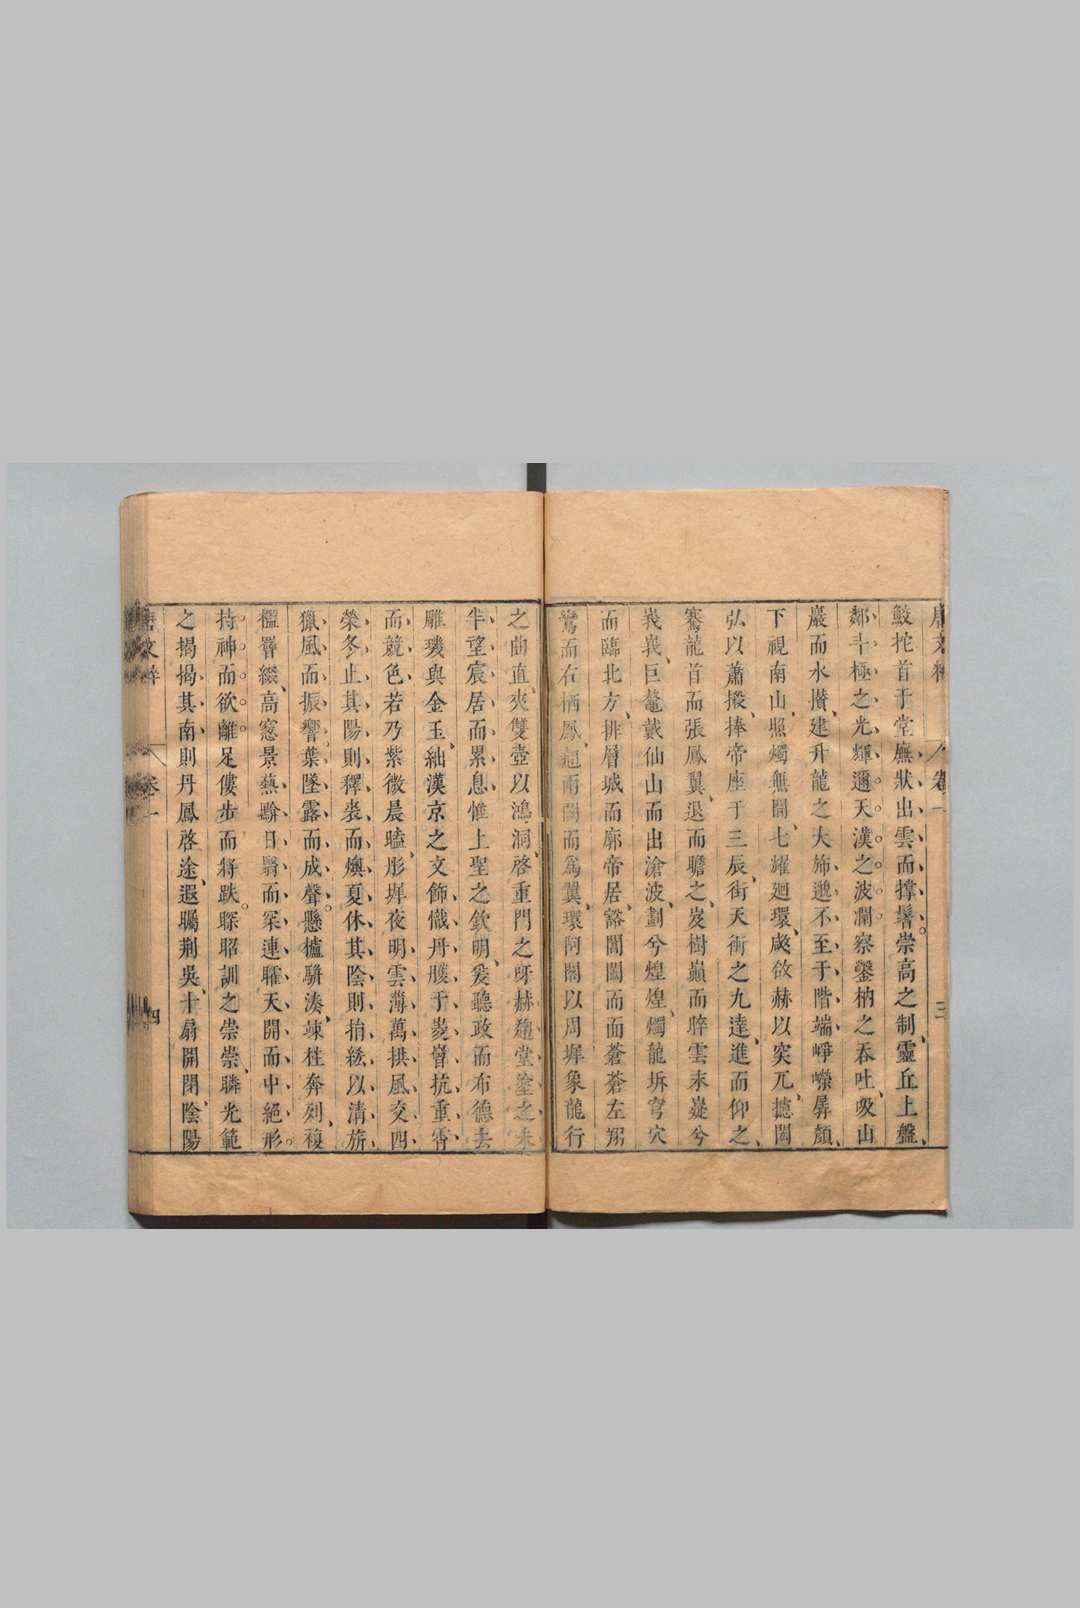 鮫拕首于堂廡狀出雲而撑㬥崇高之制靈丘上盤
鄰斗極之光輝邇天漢之波瀾察鑿枘之吞吐吸山
巖而水攢建升龍之大斾邈不至于階端崢嶸孱顏
下視南山照燭無間七耀廻環鬱欱赫以突兀摠閶
弘以蕭撥捧帝座于三辰街天術之九達進而仰之
騫龍首而張鳳翼退而瞻之岌樹巔而崪雲末嶷兮
峩峩巨鼇戴仙山而出滄波劃兮煌煌燭龍坼穹穴
而臨北方排層城而廓帝居豁閶闔而面蒼蒼左翔
鸞而右栖鳳翹兩闕而爲翼環阿閣以周墀象龍行
之曲直夾雙壺以鴻洞啓重門之呀赫趨堂塗之未
半望宸居而累息惟上聖之欽明爰聽政而布德去
雕璣與金玉絀漢京之文飾熾丹雘于崚嶒抗重霄
而競色若乃紫微晨曀彤墀夜明雲薄萬拱風交四
榮冬止其陽則釋裘而燠夏休其陰則抬絺以清旂
獵風而振響葉墜露而成聲懸櫨駢湊竦柱奔列複
檻疊綴高窓景爇黝日翳而冞連曜天開而中絕形
持神而欲離足僂步而將跌睬昭訓之崇崇疄光範
之揭揭其南則丹鳳啓途遐矚荆吳十扇開閉陰陽
卷一
三
卷一
四